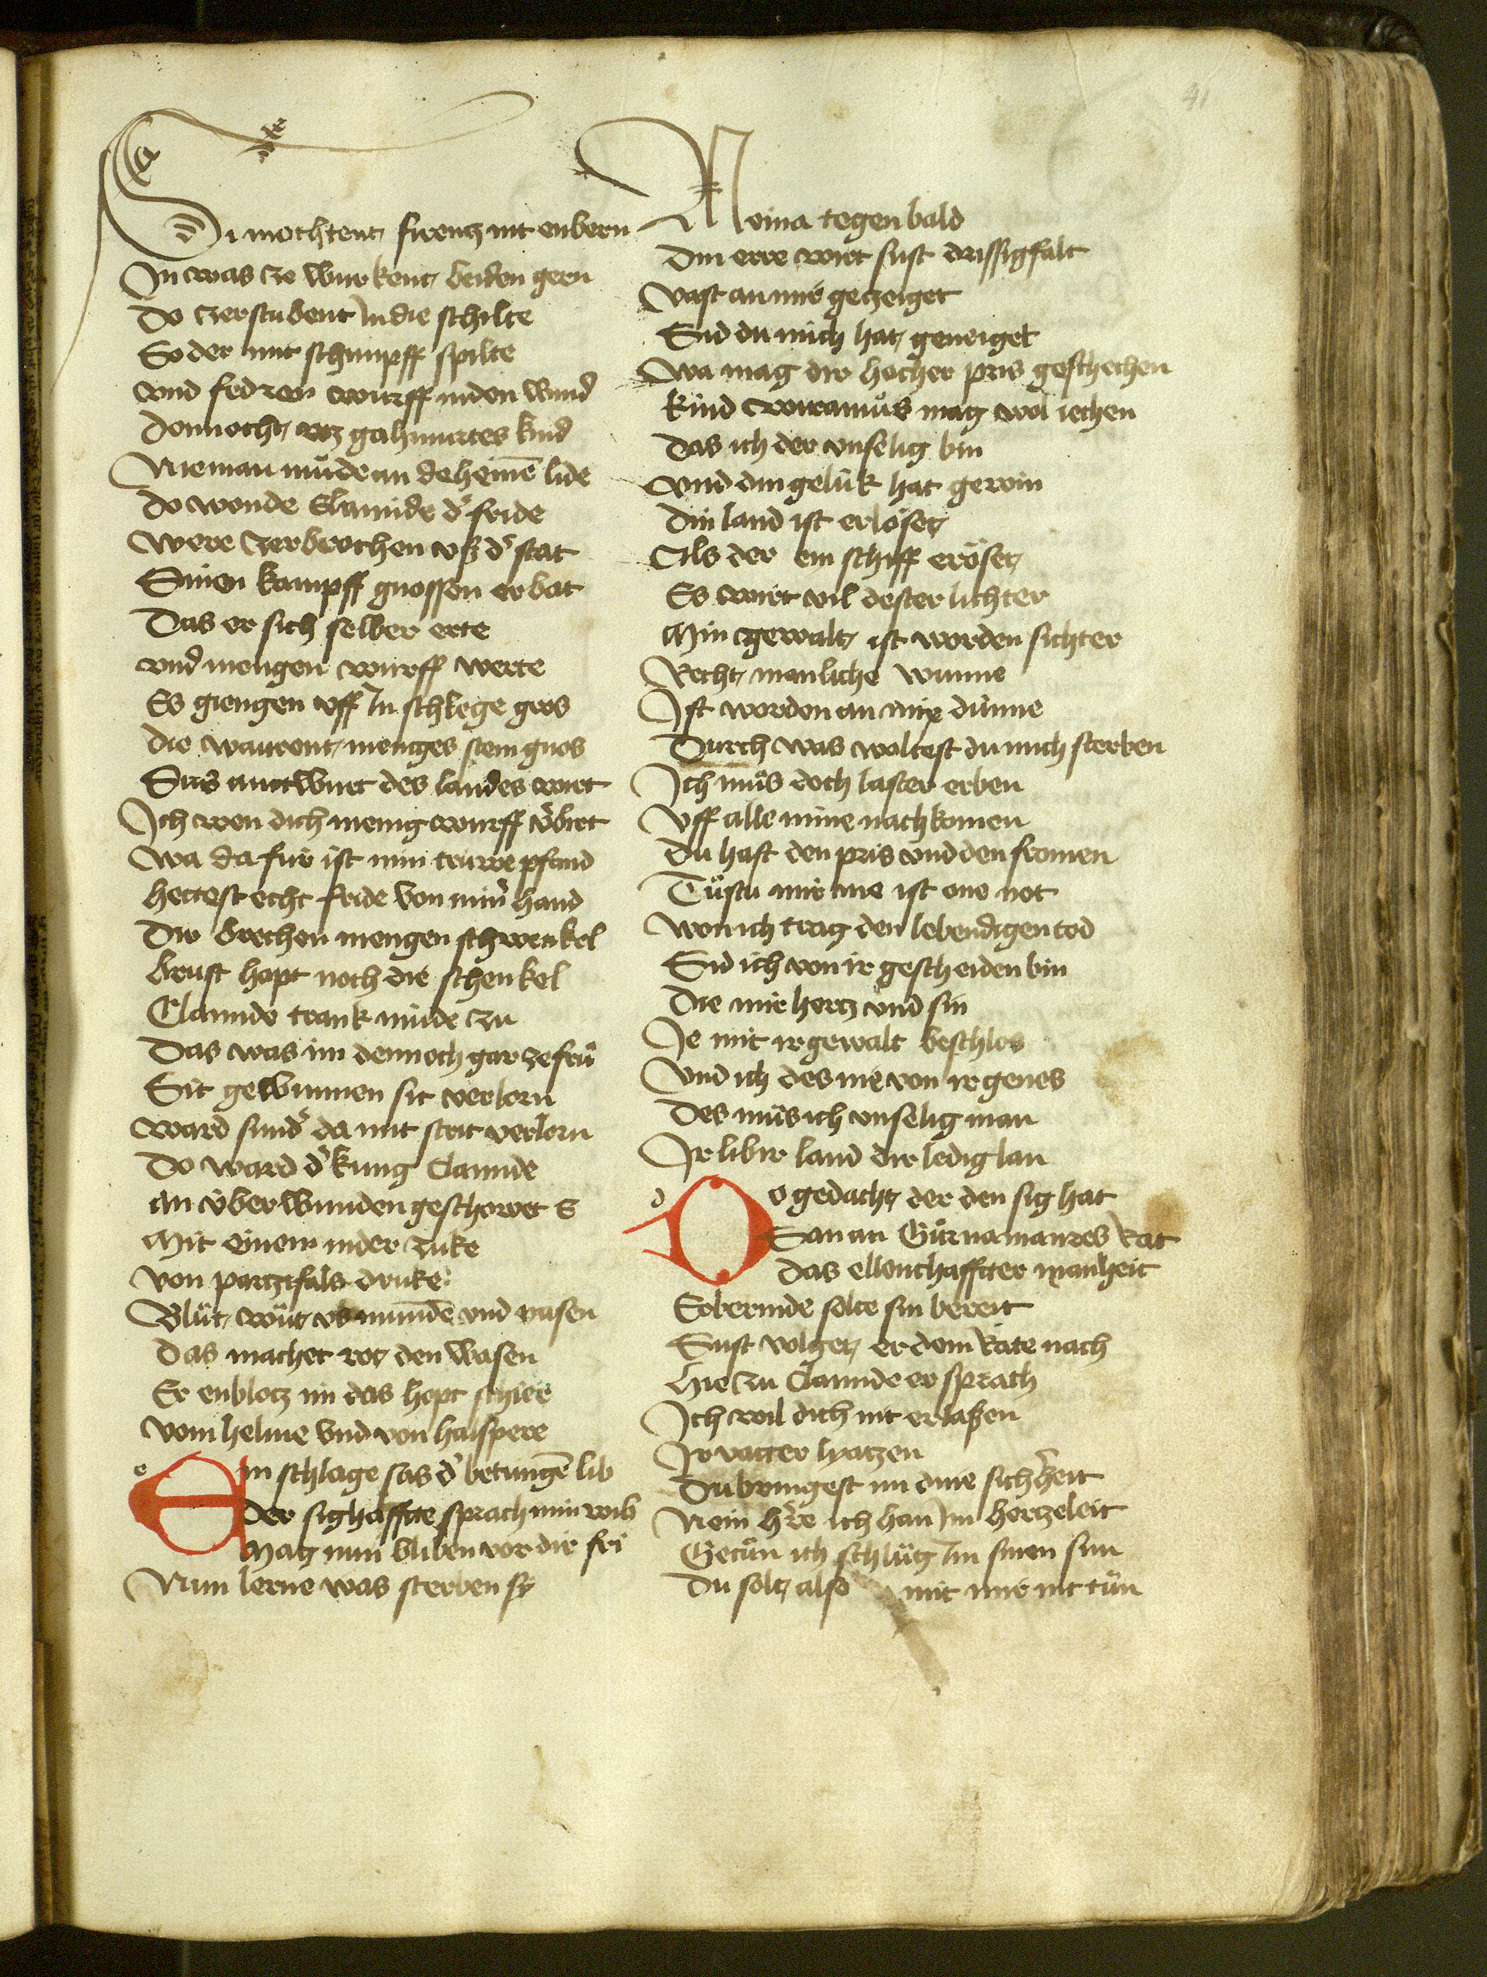 41
Si mochtent firentz nit enbern
In was ze wurkent beiden gern
Do zerstubent in die schilte
So der mit schimpff spilte
vnd fedren wurff in den wind
Dennocht wz gahmuretes kind
Nieman müde an deheinē lide
Do wonde Clamide dˀ fride
Were zerbrochen vß dˀ stat
Sinen kampff gnossen er bat
Das er sich selber erte
vnd mengen wurff werte
Es giengen vff In schlege gros
die warent menges stein gnos
Sus antwurt des landes wirt
Ich wen dich menig wurff vˀbirt
wa da fur ist min truwe pfand
hettest echt fride von minˀ hand
Dir brechen mengen schwenkel
brust hopt noch die schenkel
Clamide trank müde zu
Das was im dennoch gar ze fru
Sit gewunnen sit verlorn
ward sundˀ da mit strit verlorn
Do ward dˀ kung Clamide
an vberwunden geschowet E
Mit einem nider zuke
von partzifals druke
Blüt wüt vs munde vnd nasen
Das machet rot den wasen
Er enblotz im das hopt schier
vom helme vnd von halspere
e Ein schlage sas dˀ betungē lib
Der sighaffte sprach min wib
Mag nun bliben vor dir fri
Nun lerne was sterben sy
Neina tegen bald
Din erre wirt sust drissigfalt
vast an mir gezeiget
Sid du mich hat geneiget
wa mag dir hocher pris geschechen
kind wiramüs mag wol iechen
Das ich der vnselig bin
vnd din gelük hat gewin
Din land ist erlöset
Als der ein schiff eröset
Es wirt vil dester lichter
Min gewalt ist worden sichter
Recht manliche wunne
Ist worden an mir dünne
Durch was woltest du mich sterben
Ich müs doch laster erben
Vff alle mine nachkomen
Du hast den pris vnd den fromen
Tüstu mir me ist one not
won ich trag den lebendigen tod
Sid ich von ir gescheiden bin
Die mir hertz vnd sin
Ie mit ir gewalt beschlos
Vnd ich des nie von ir genos
Des müs ich vnselig man
Ir lib ir land dir ledig lan
d Do gedacht der den sig hat
San an Gürnamantzes Rat
Das ellenthafftter manheit
Erbermde solte sin bereit
Sust volget er dem Rate nach
Hie zu Clamide er sprach
Ich wil dich nit erlaßen
Ir vatter lyatzen
Du bringest im dine sichˀheit
Nein hˀre ich han im hertzeleit
Getün ich schlüg Im sinen sun
Du solt also mit mir nit tün